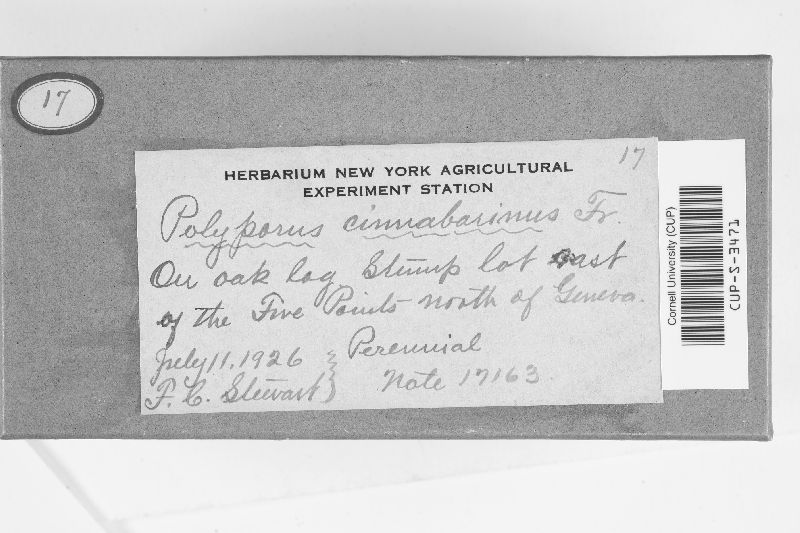 17
17
HERBARIUM NEW YORK AGRICULTURAL
EXPERIMENT STATION
Polyporus cinnabarinus Fr.
On oak log Stump lot east
of the Five Points north of Geneva.
July 11, 1926 } Perennial
F. C. Stewart } Note 17163.
Cornell University (CUP)
CUP-S-3471